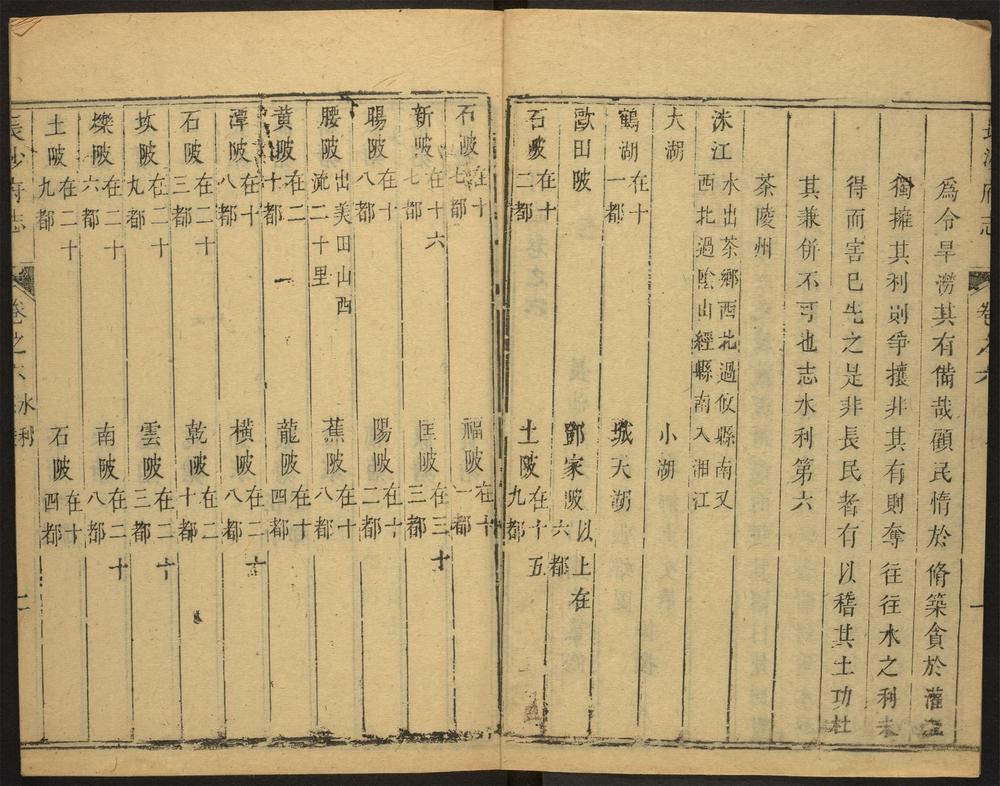 長沙府志 卷之六 一
為令旱澇其有備哉顧民情於脩築貪於灌
獨擁其利則爭攘非其有則奪往往水之利未
得而害已先之是非長民者有以稽其土功杜
其兼併不可也志水利第六
茶陵州
洣江 水出茶鄉西北過攸縣南又
西北過陰山經縣南入湘江
大湖 小湖
鶴湖 在十一都 城大湖
歐田陂 鄧家陂 以上在六都
石陂 在十二都 土陂 在十五九都
石陂 在十七都 福陂 在十一都
新陂 在十六七都 匡陂 在三十三都
腸陂 在十八都 陽陂 在十二都
腰陂 出美田山西流二十里 蕉陂 在十八都
黄陂 在二十都 龍陂 在十四都
潭陂 在十八都 橫陂 在二十八都
石陂 在二十三都 乾陂 在二十都
坎陂 在二十九都 雲陂 在二十三都
爍陂 在二十六都 南陂 在二十八都
土陂 在二十九都 石陂 在十四都
長沙府志 卷之六 水利 二